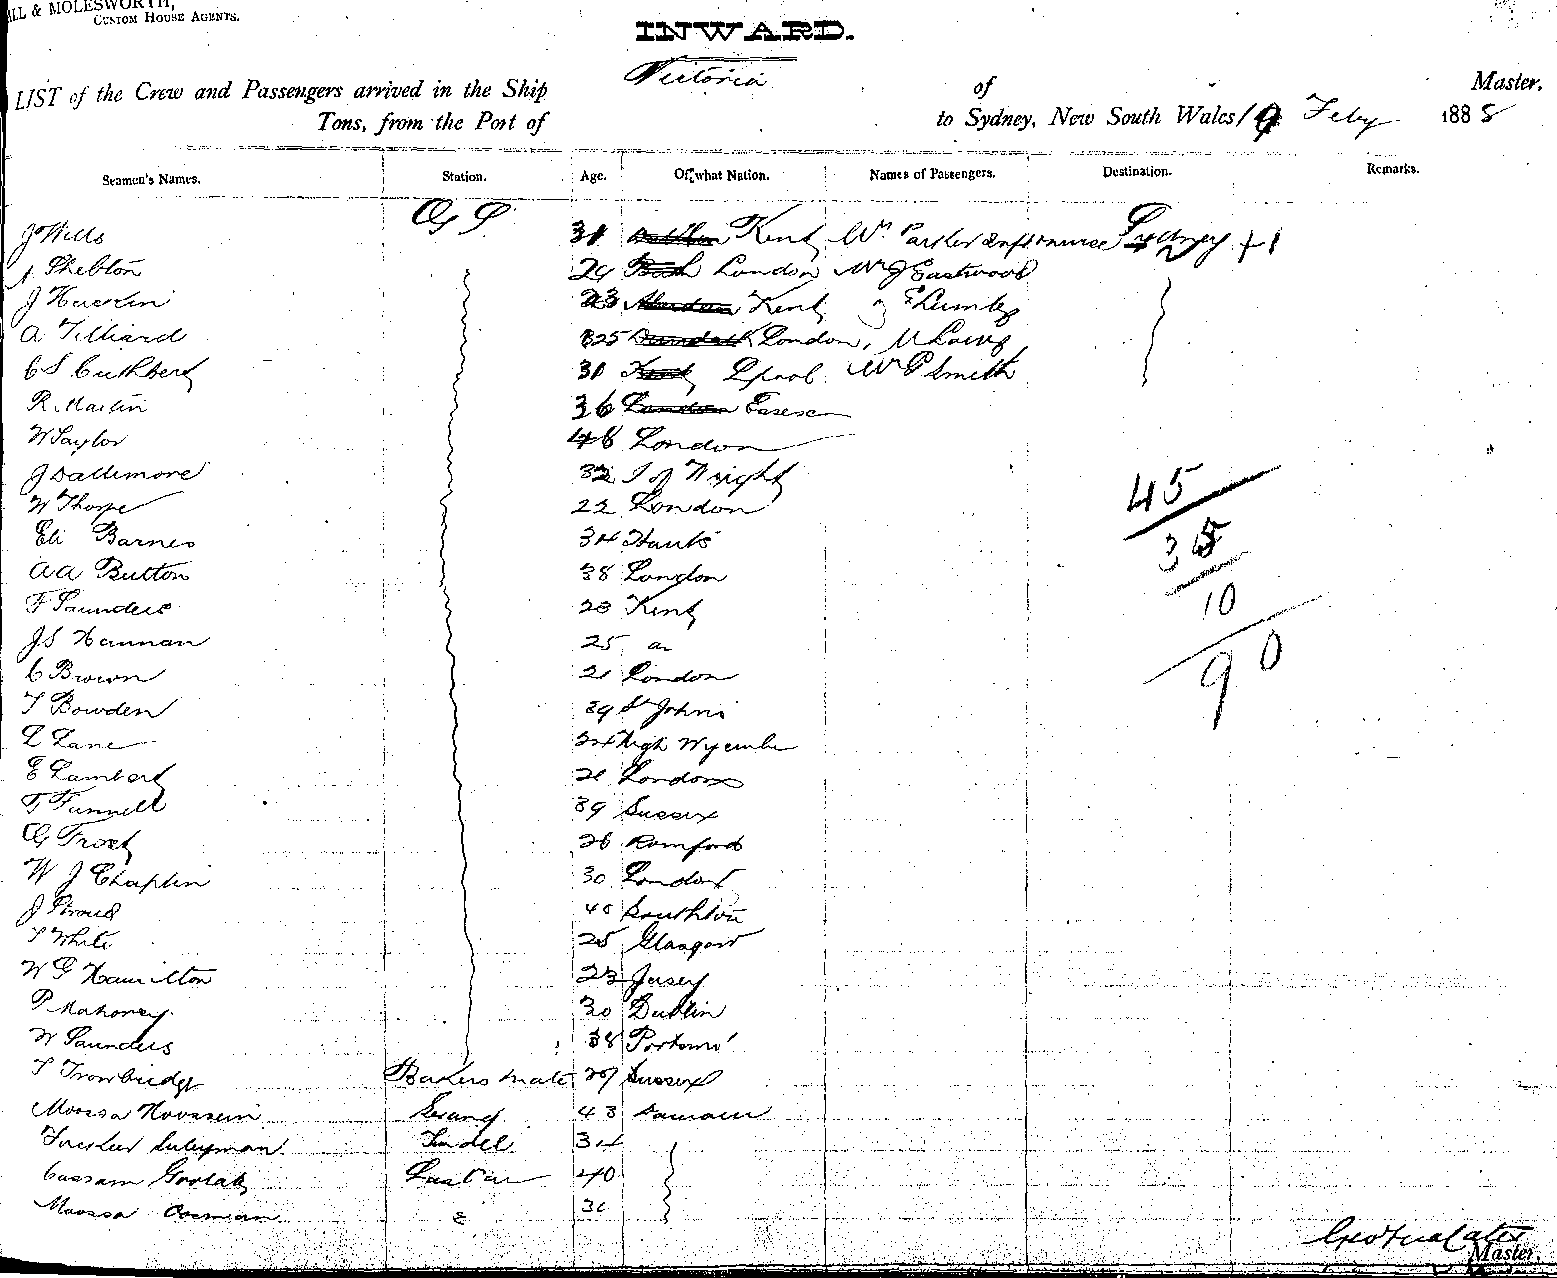 ILL & MOLESWORTH,
CUSTOM HOUSE AGENTS.
INWARD.
LIST of the Crew and Passengers arrived in the Ship Victoria of Master.
Tons, from the Port of to Sydney, New South Wales, Feby 1888
Seamen's Names. Station. Age. Of what Nation. Names of Passengers. Destination. Remarks.
J Wills G S 31 Kent Wm Parker Sydney + 1
Shelton 24 London Mr J Eastwood
J 23 Kent Lumby
A Tilliard 25 London,
C S Cuthbert 31 Lpool Mr P Smith
R. Martin 36 Essex
W Taylor 48 London
J Dallimore 32 I of Wight
W Thorpe 22 London 45
Eli Barnes 34 Hants 35
A A Button 38 London 10
F Saunders 23 Kent
J S Hannan 25
C Brown 21 London 90
T Bowden 39 St Johns
L Lane 24 High Wycombe
E Lambert 21 London
T Funnell 39 Sussex
G Frost 26 Romford
W J Chaplin 30 London
J Stroud 40 Southton
T White 25 Glasgow
W G Hamilton 23 Jersey
P Mahoney 30 Dublin
W Saunders 38 Portsm'
T Trowbridge Bakers mate 29 Sussex
Moossa Hoossein Serang 43 Damaun
Suleyman Tindel 34
Cassam Goolab Lascar 40
Moossa Oosman
Master.